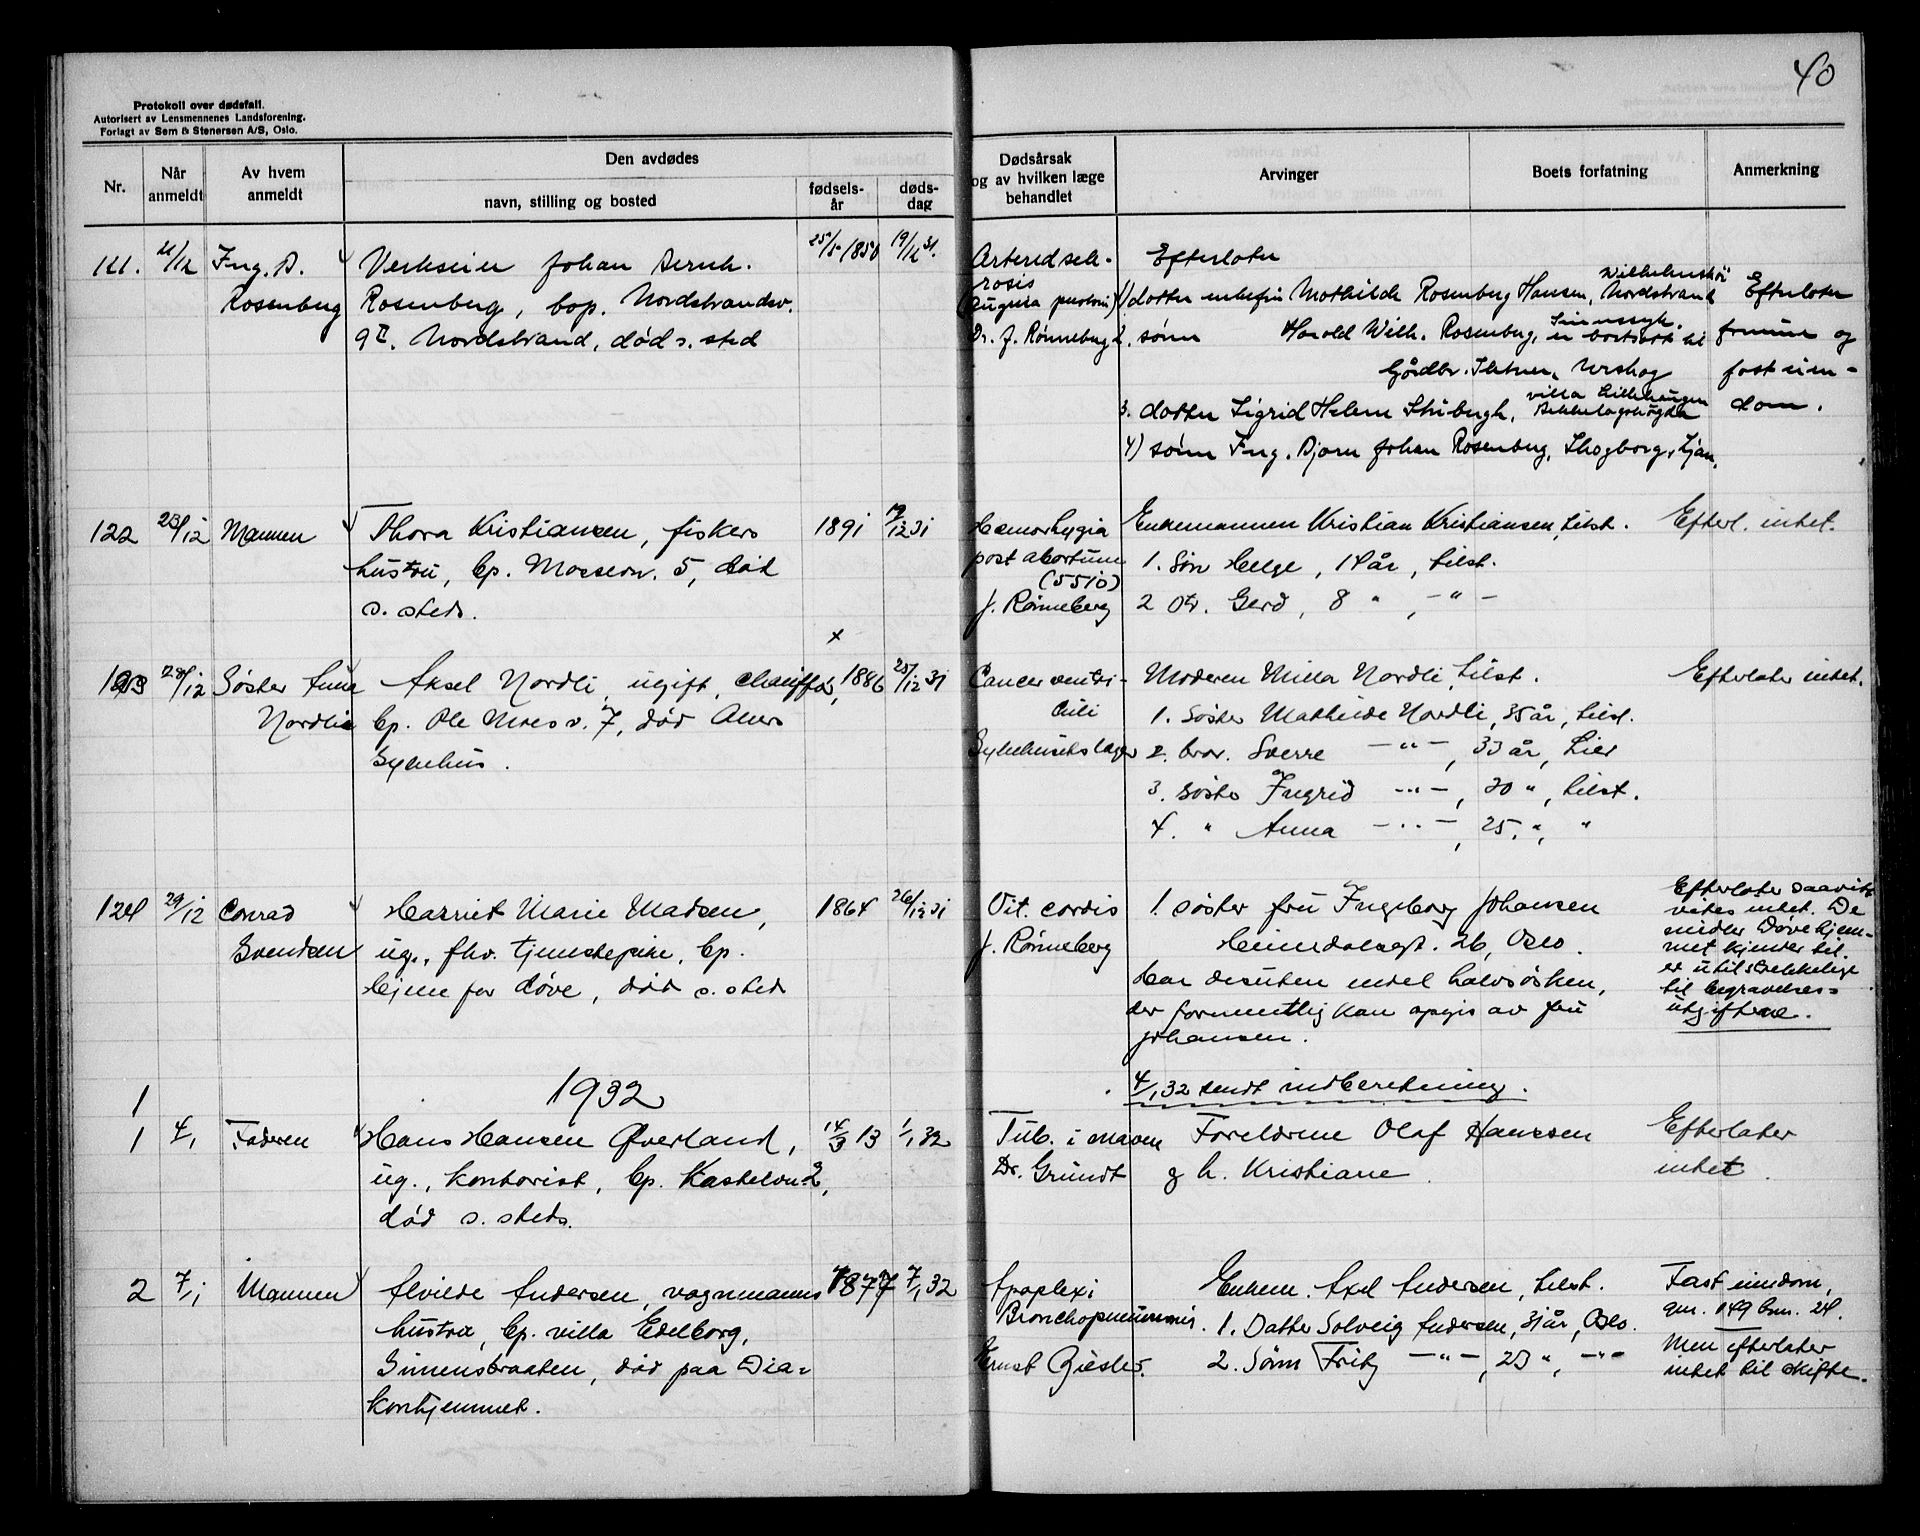 40
Protokoll over dødsfall.
Autorisert av Lensmennenes Landsforening.
Forlagt av Sem & Stenersen A/S, Oslo.
Nr.
Når anmeldt
Av hvem anmeldt
Den avdødes
navn, stilling og bosted
fødsels-år
døds-dag
Dødsårsak og av hvilken læge behandlet
Arvinger
Boets forfatning
Anmerkning
121. 21/12 Ing. B. Rosenberg
Verkseier Johan Bernh.
Rosenberg, bop. Nordstrandsv.
9 II. Nordstrand, død s. sted
25/5 1850 19/12 31.
Arteriosclerosis
(Angina pectoris)
Dr. J. Rønneberg
Efterlater
1) datter enkefru Mathilde Rosenberg Hansen, Nordstrand
2. sønn Harald Wilh. Rosenberg, Sinnssyk. er bortsatt til
Gårdbr.
3. datter Sigrid Helene villa Lillehaugen Bekkelagshøgda
4) sønn Ing. Bjørn Johan Rosenberg, Skogborg, Ljan.
Efterlater
formue og
fast eien-
dom.
122 23/12 Mannen
Thora Kristiansen, fiskers
hustru, bp. Mosseov. 5, død
s. steds.
1891 19/12 31
Hæmorhygia
post abortum
(5510)
J. Rønneberg
Enkemannen Kristian Kristiansen, tilst.
1. Søn Helge, 14 år, tilst.
2 Dtr. Gerd, 8 " , -"-
Efterl. intet.
x
123 28/12 Søster Anna
Nordlie
Aksel Nordli, ugift, chauffør,
bp. Ole Moes v. 7, død Akers
Sykehus.
1886 25/12 31
Cancer ventri-
culi
Sykehusets læger
Moderen Milla Nordli, tilst.
1. Søster Mathilde Nordli, 35 år, tilst.
2. bror. Sverre -"-, 33 år, Lier
3. søster Ingrid -"-, 30 ", tilst.
4. " Anna -"-, 25. ", "
Efterlater intet.
124 29/12 Conrad
Svendsen
Harriet Marie Madsen,
ug., fhv. tjenestepike, bp.
Hjem for døve, død s. sted
1864 26/12 31
Vit. cordis
J. Rønneberg
1. søster fru Ingeborg Johansen
Heimdalsgt. 26, Oslo.
Har desuten endel halvsøsken,
der formentlig kan opgis av fru
Johansen.
4/1 32 sendt indberetning.
Efterlater saavidt
vites intet. De
midler Døvehjem-
met kjender til
er utilstrekkelige
til begravelses-
utgiftene.
1932
1
1 4/1 Faderen
Hans Hansen Øverland,
ug., kontorist, bp. Kastelvn 2,
død s. steds.
14/3 13 1/1 32
Tub. i maven
Dr. Grundt
Forældrene Olaf Hanssen
g h. Kristiane.
Efterlater
intet.
2 7/1 Mannen
Alvilde Andersen, vognmanns
hustru, bp. villa Edelborg,
Simensbraaten, død paa Dia-
konhjemmet.
1877 7/1 32
Apoplexi
Bronchopneumoni.
Ernst
Enkem. Axel Andersen, tilst.
1. Datter Solveig Andersen, 31 år, Oslo.
2. Sønn Fritz -"-, 23 ", -"-
Fast eiendom,
gnr. 149 bnr. 24.
Men efterlater
intet til skifte.